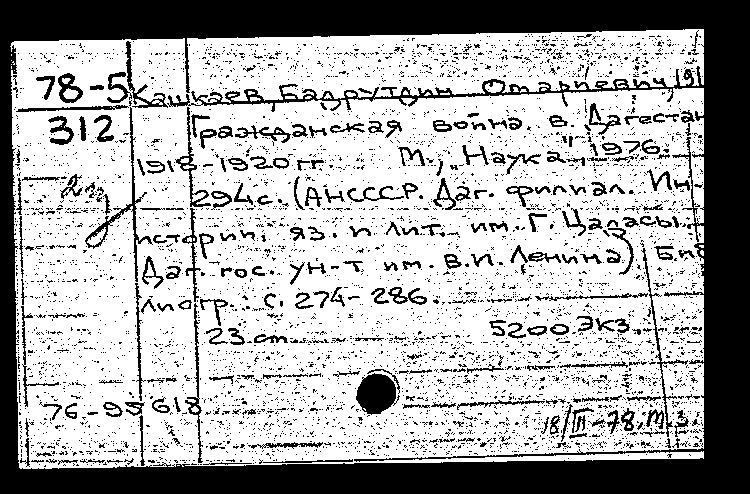 78-5 Кашкаев, Бадрутдин Омариевич, 191
312 Гражданская война в Дагестан
1918-1920 гг. М., „Наука", 1976.
2 эз
294 с. (АН СССР. Даг. филиал. Ин-
истории, яз. и лит. им. Г. Цадасы.
Даг. гос. ун-т им. В.И. Ленина). Биб
лиогр.: с. 274-286.
23 см 5200 экз.
76-95618
18/III-78. М.З.